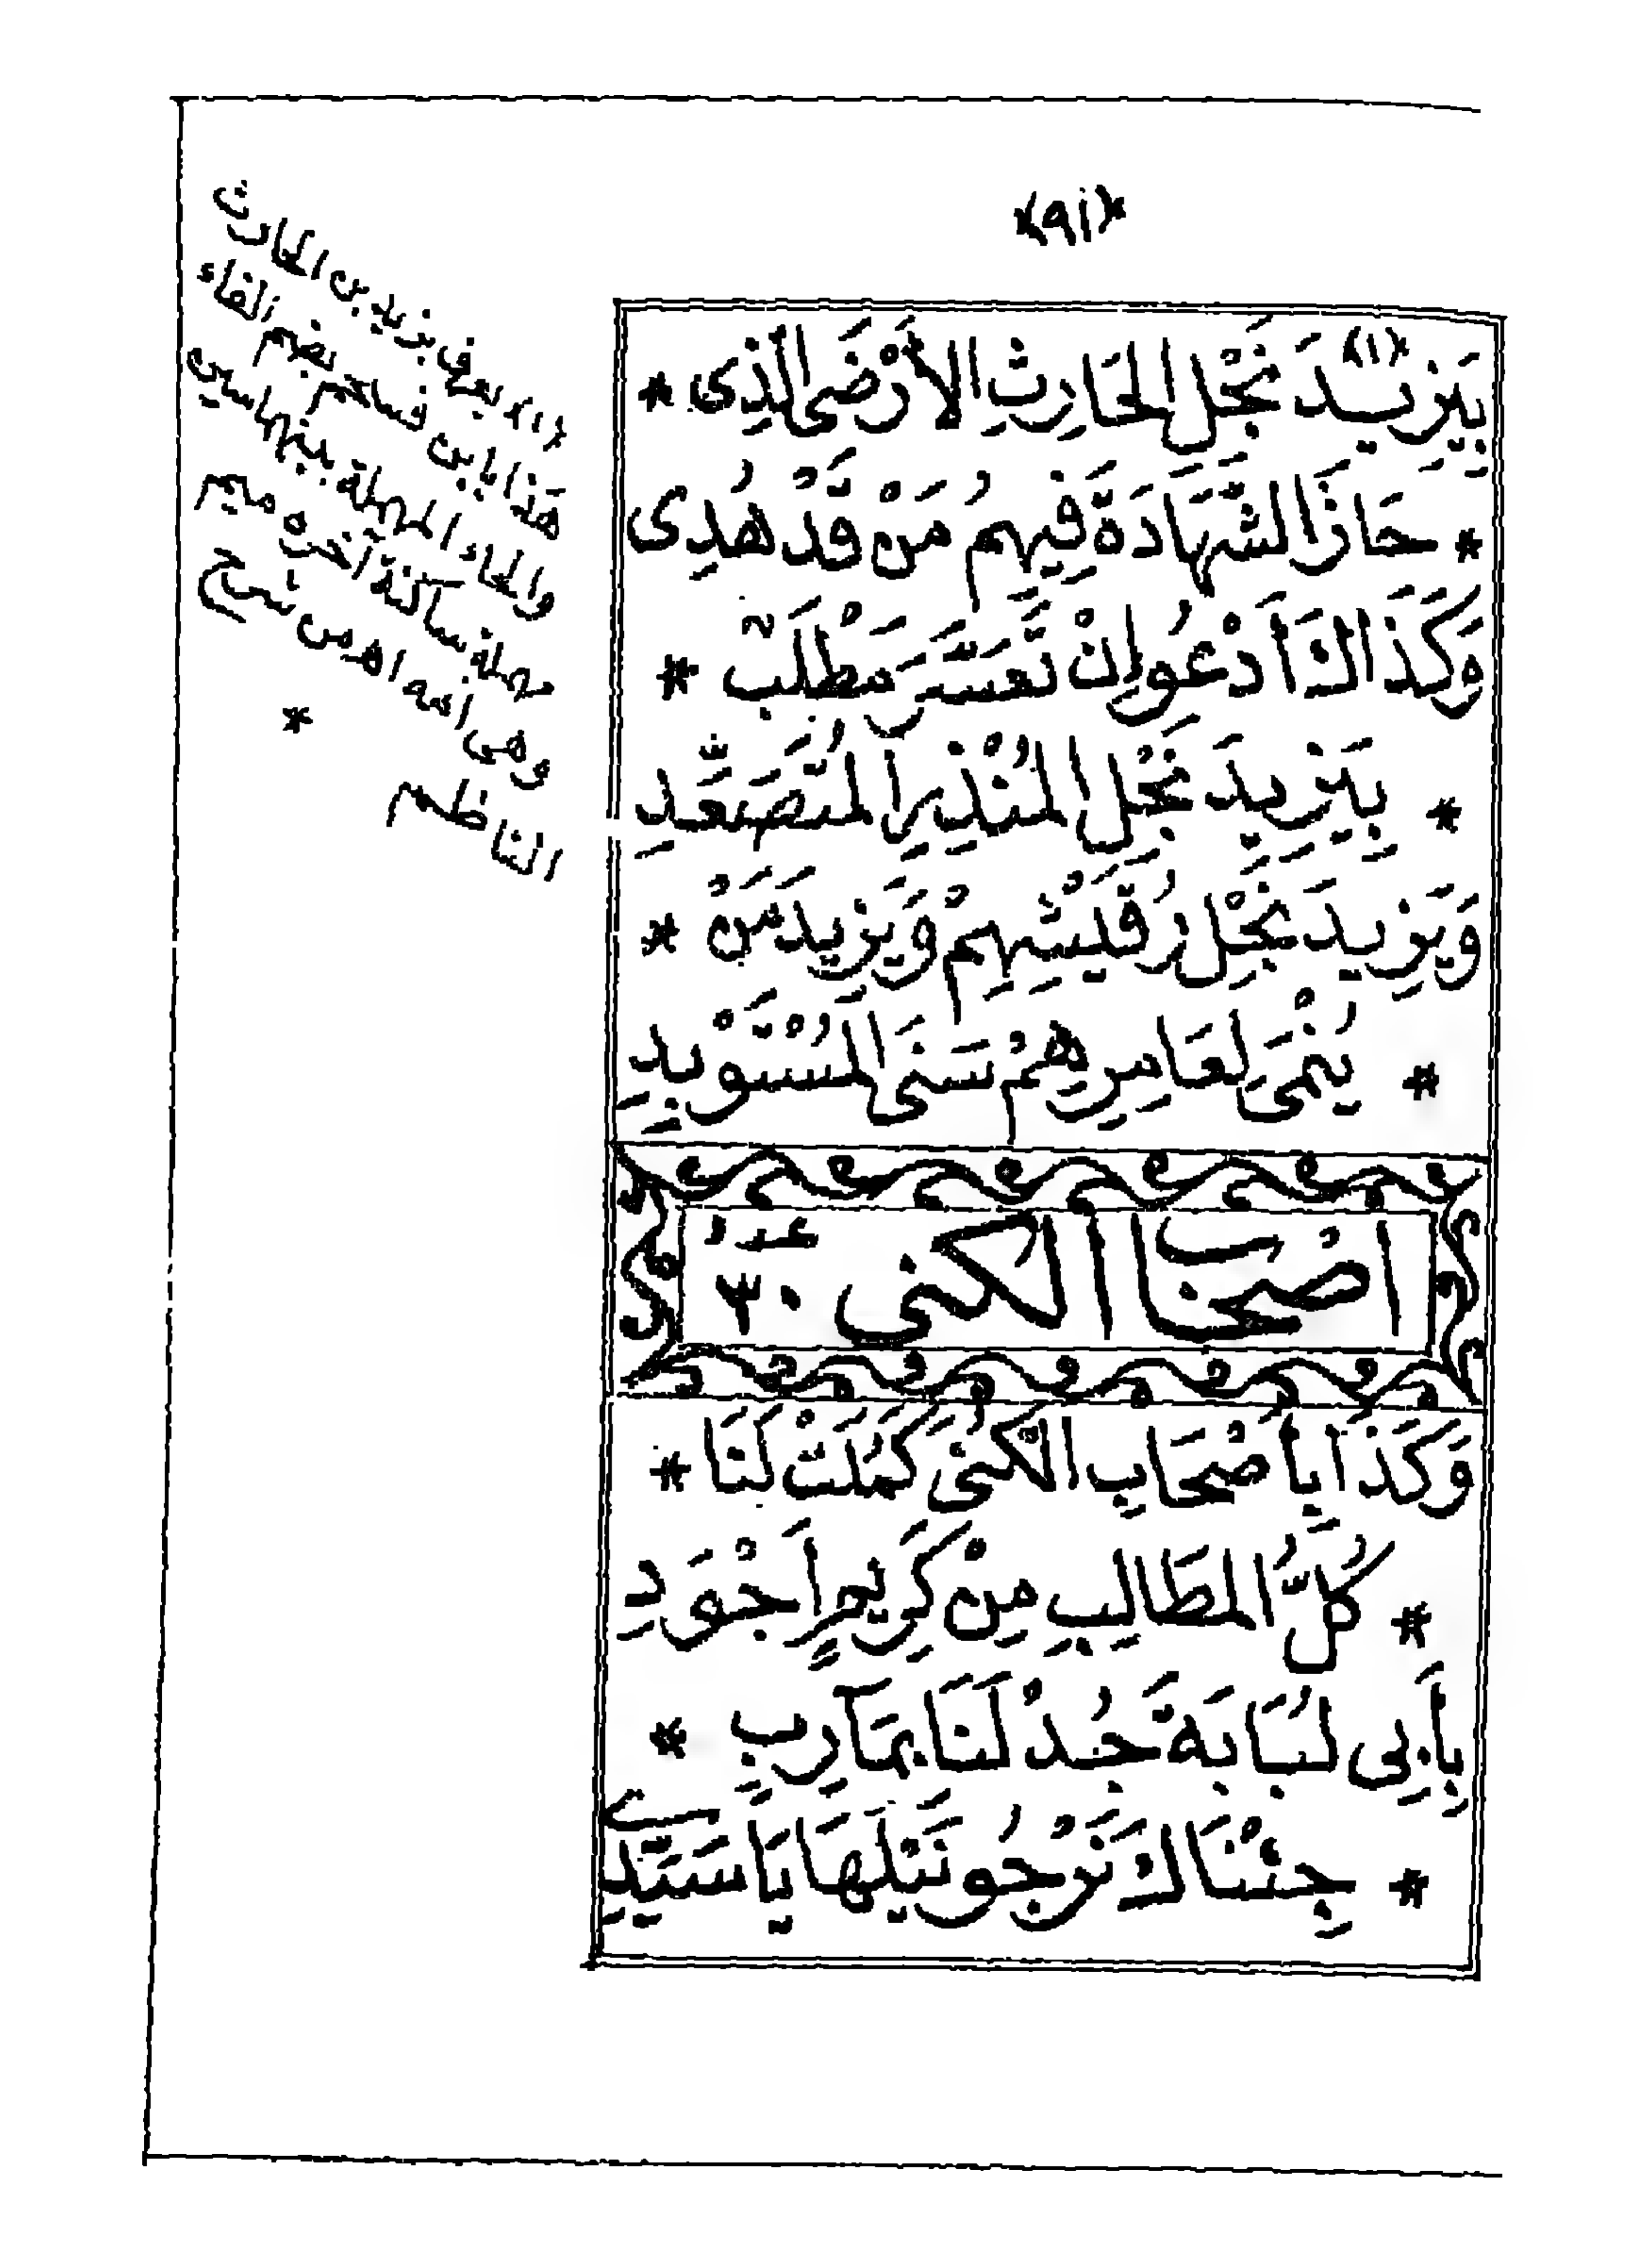 ﴿٩١﴾
بِيَزِيدَ ﴿١﴾ نَجْلِ الحَارِثِ الأَرْضَى الَّذِى *
* حَازَ الشَّهَادَةَ فِيهِمُ مَنْ قَدْ هُدِى
وَكَذَاكَ أَدْعُو إِنْ تَعَسَّرَ مَطْلَبٌ *
* بِيَزِيدَ نَجْلِ المُنْذِرِ المُتَصَعِّدِ
وَيَزِيدَ نَجْلِ رُقَيْشِهِمْ وَيَزِيدَ مَنْ *
* يُنْمَى لَعَامِرِهِمْ سَنَى المُسْتَوْبِدِ
اصْحَابُ الكنى عدد ٣٠
وَكَذَا بِأَصْحَابِ الكُنَى كَمُلَتْ لَنَا *
* كُلُّ المَطَالِبِ مِنْ كَرِيمٍ أَجْوَدِ
بِأَبِى لُبَابَةَ جُدْ لَنَا بِمَآرِبٍ *
* جِئْنَاكَ نَرْجُو نَيْلَهَا يَا سَيِّدِي
﴿١﴾ يعرف يزيد بن الحارث
هذا بابن فسحم بضم الفاء
والحاء المهملة بينهما سين
مهملة ساكنة آخره ميم
وهى أمه اهـ من شرح
الناظم *